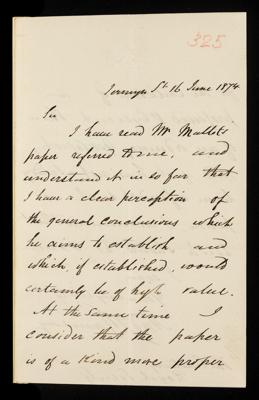 325
Jermyn St 16 June 1874
Sir
I have read Mr Mallet's
paper referred to me, and
understand it in so far that
I have a clear perception of
the general conclusions which
he aims to establish and
which, if established, would
certainly be of high value.
At the same time I
consider that the paper
is of a kind more proper